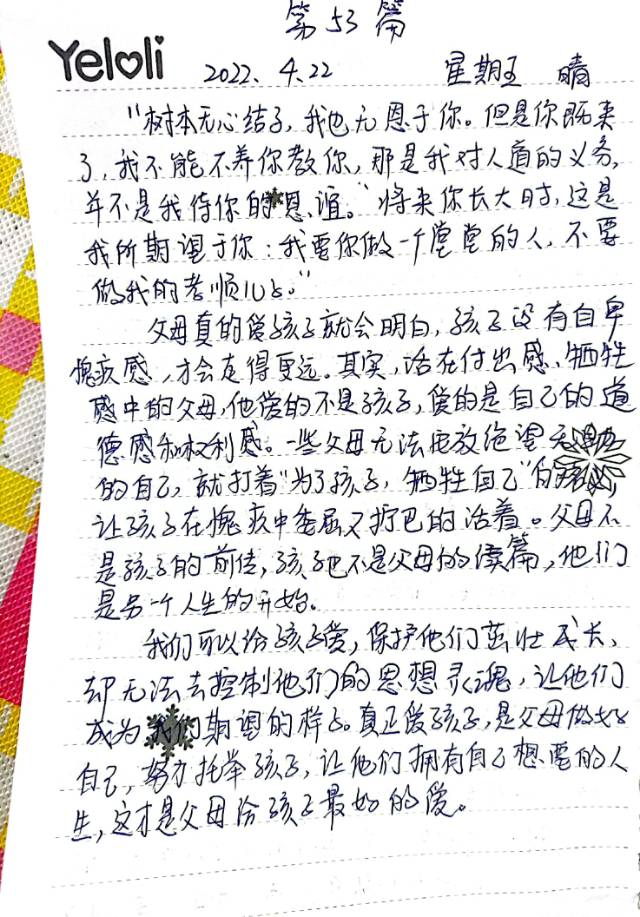 第53篇
Yeloli
2022.4.22 星期五 晴
"树本无心结子,我也无恩于你。但是你既来
了,我不能不养你教你,那是我对人道的义务,
并不是我待你的恩谊。"将来你长大时,这是
我所期望于你:我要你做一个堂堂的人,不要
做我的孝顺儿子。"
父母真的爱孩子就会明白,孩子没有自卑
愧疚感,才会走得更远。其实,活在付出感、牺牲
感中的父母,他爱的不是孩子,爱的是自己的道
德感和权利感。一些父母无法安放绝望无
的自己,就打着"为了孩子,牺牲自己"的
让孩子在愧疚中委屈又拧巴的活着。父母不
是孩子的前传,孩子也不是父母的续篇,他们
是另一个人生的开始。
我们可以给孩子爱,保护他们茁壮成长,
却无法去控制他们的思想灵魂,让他们
成为我们期望的样子。真正爱孩子,是父母做好
自己,努力托举孩子,让他们拥有自己想要的人
生,这才是父母给孩子最好的爱。